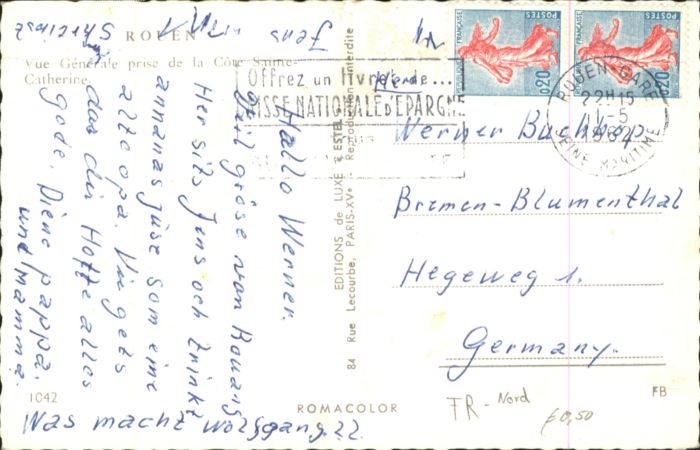 ROUEN
Vue Générale prise de la Côte Sainte-
Catherine.
Offrez un livret de...
CAISSE NATIONALE d'EPARGNE
RÉPUBLIQUE FRANÇAISE
POSTES
0,20
RÉPUBLIQUE FRANÇAISE
POSTES
0,20
ROUEN-GARE
22H15
11-5
1964
SEINE MARITIME
Hallo Werner.
Her sits Jens och trinkt
annanas jüse som eine
alto opa. Vie gets
das dir Hoffe alles
gode. Diene pappa.
und mamma.
Was macht wolfgang??
Jens
Herrn
Werner Buchhop
Bremen-Blumenthal
Hegeweg 1.
Germany.
EDITIONS de LUXE ESTEL
84 Rue Lecourbe, PARIS-XVe - Reproduction interdite
1042
ROMACOLOR
FB
FR-Nord
€0,50